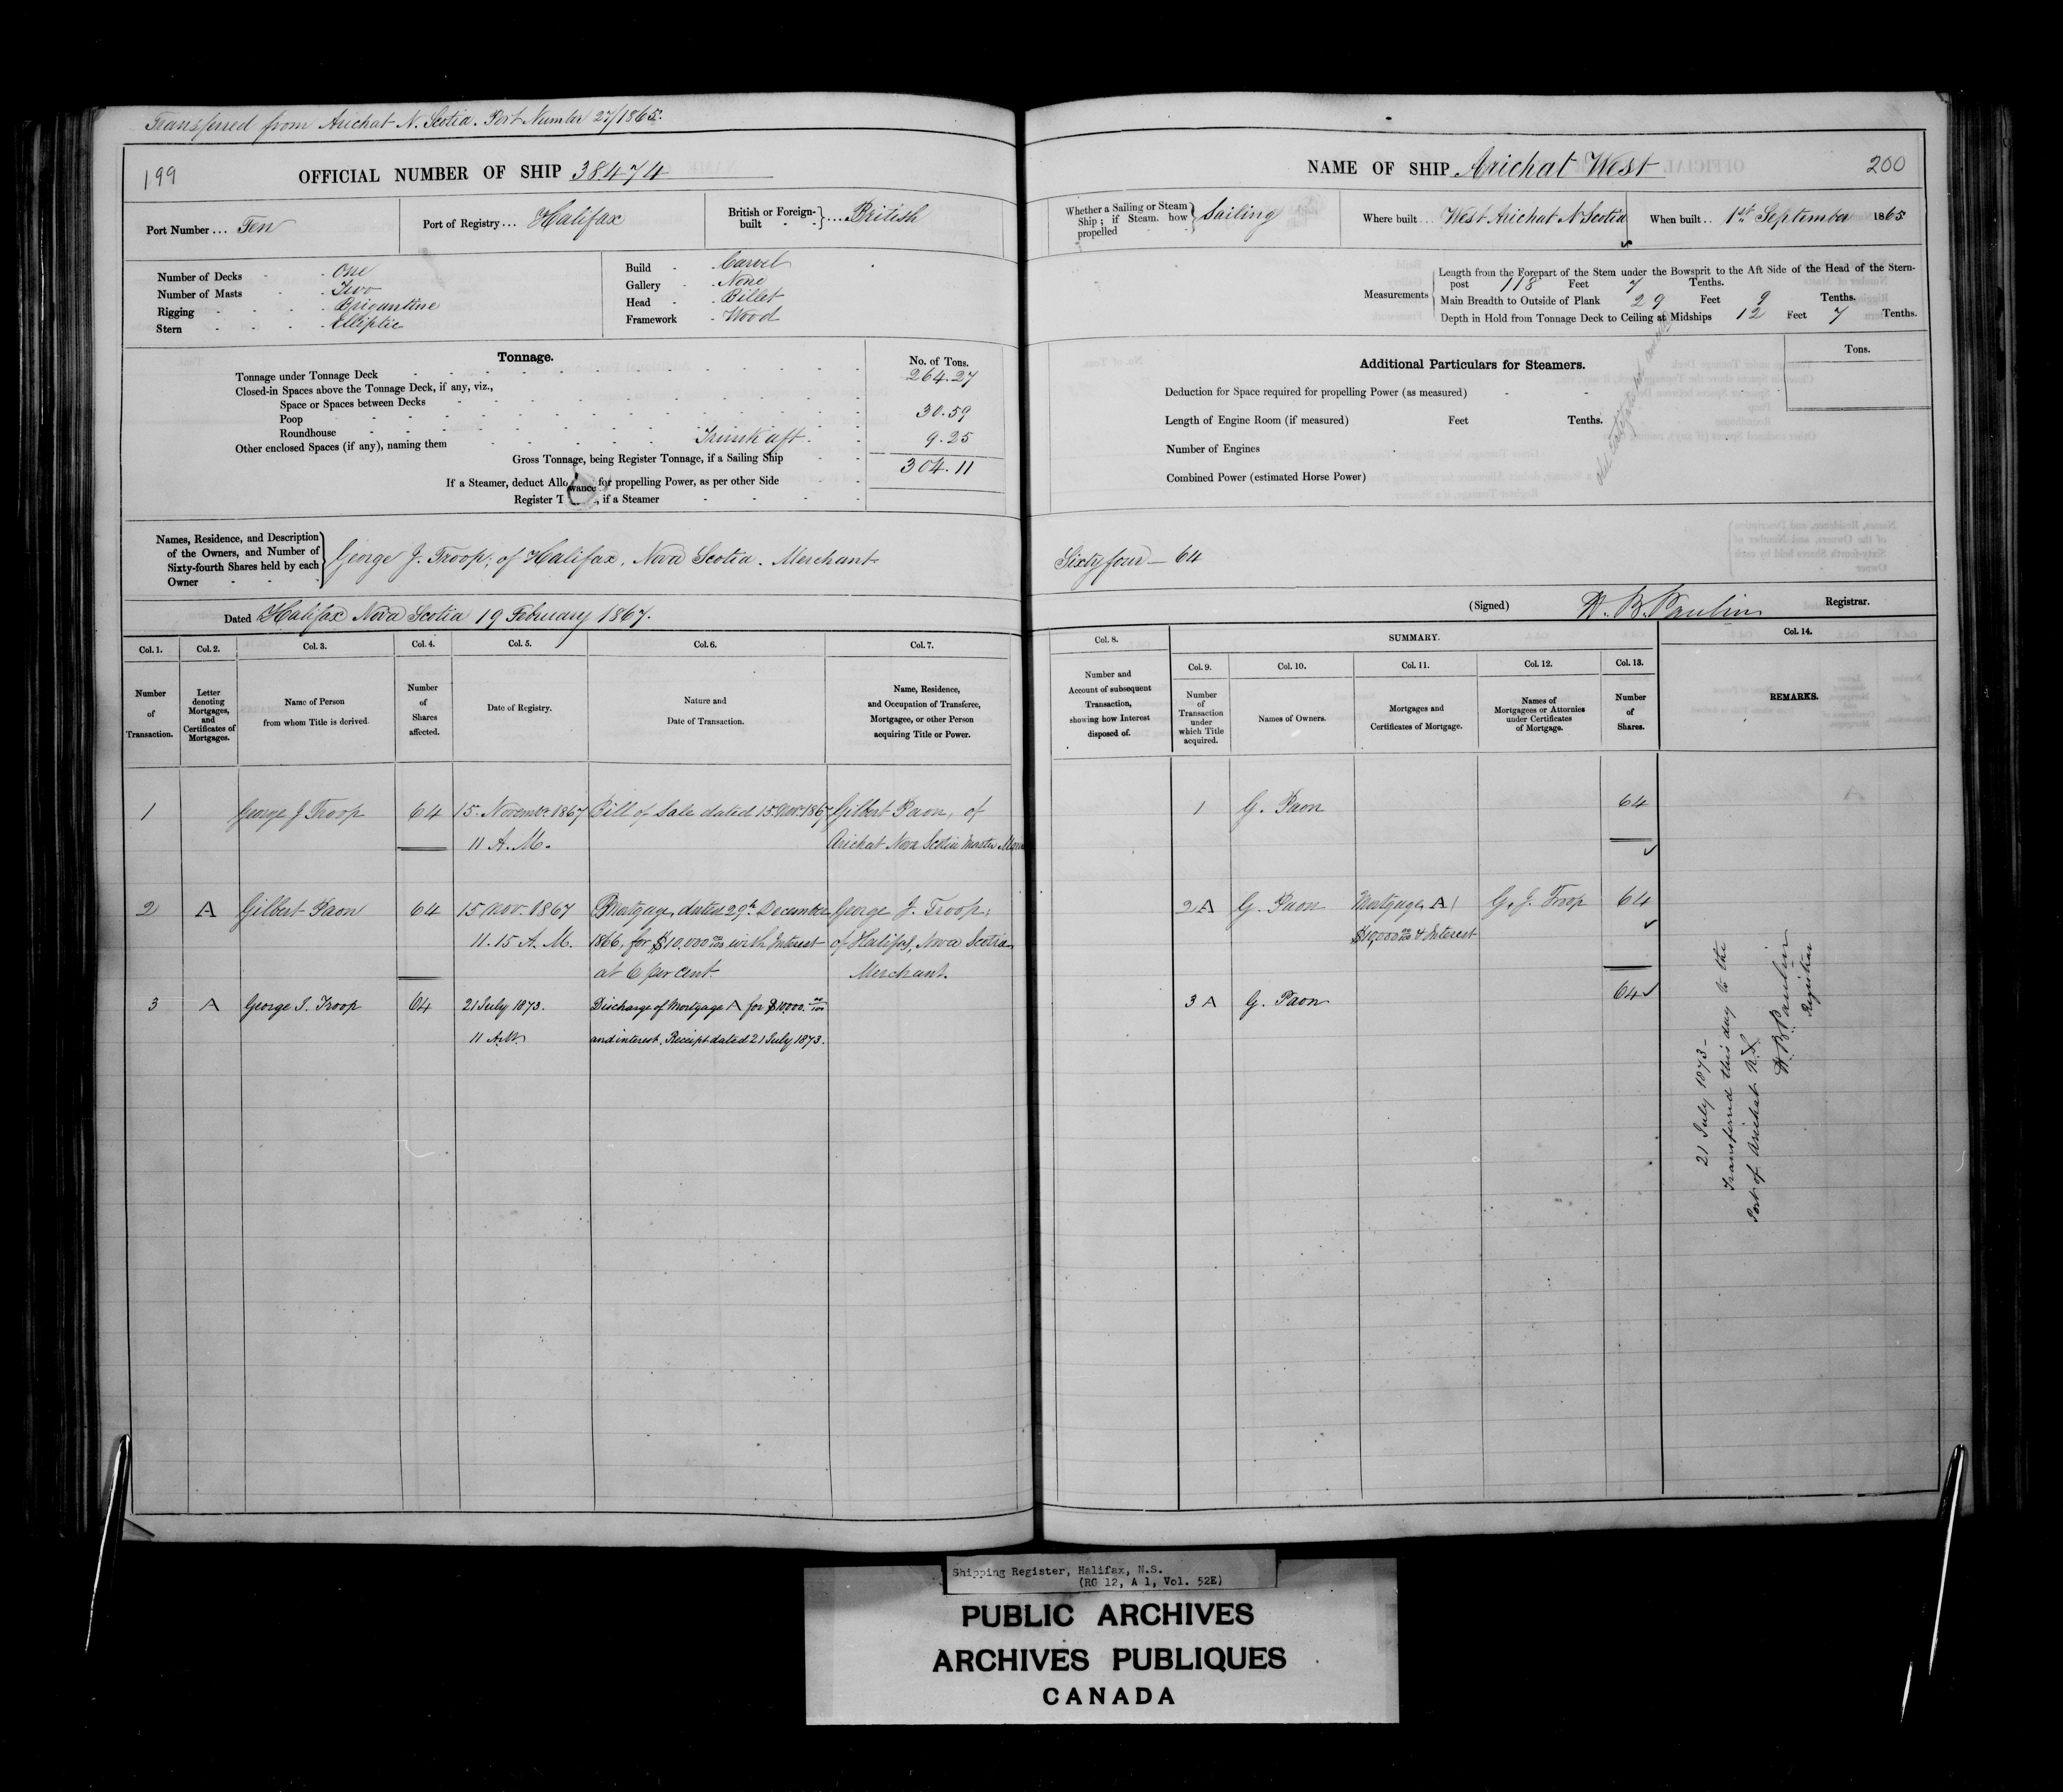 Transferred from Arichat N. Scotia. Port Number 27/1865.
199
OFFICIAL NUMBER OF SHIP 38474
Port Number ... Ten
Port of Registry ... Halifax
British or Foreign-built .... British
Number of Decks - One
Number of Masts - Two
Rigging - Brigantine
Stern - Elliptic
Build - Carvel
Gallery - None
Head - Billet
Framework - Wood
Tonnage.
No. of Tons.
Tonnage under Tonnage Deck 264.27
Closed-in Spaces above the Tonnage Deck, if any, viz.,
Space or Spaces between Decks
Poop 30.59
Roundhouse
Other enclosed Spaces (if any), naming them Trunk aft. 9.25
Gross Tonnage, being Register Tonnage, if a Sailing Ship 304.11
If a Steamer, deduct Allowance for propelling Power, as per other Side
Register T , if a Steamer
Names, Residence, and Description
of the Owners, and Number of
Sixty-fourth Shares held by each
Owner
George J. Troop, of Halifax, Nova Scotia. Merchant
Dated Halifax Nova Scotia 19 February 1867.
Col. 1. Col. 2. Col. 3. Col. 4. Col. 5. Col. 6. Col. 7.
Number of Transaction.
Letter denoting Mortgages, and Certificates of Mortgages.
Name of Person from whom Title is derived.
Number of Shares affected.
Date of Registry.
Nature and Date of Transaction.
Name, Residence, and Occupation of Transferee, Mortgagee, or other Person acquiring Title or Power.
1 George J Troop 64 15. November 1867 Bill of Sale dated 15. Nov. 1867 Gilbert Paon, of
11 A.M. Arichat Nova Scotia Master
2 A Gilbert Paon 64 15 Nov. 1867 Mortgage, dated 29th December George J. Troop,
11.15 A.M. 1866, for $10,000 00/100 with Interest of Halifax, Nova Scotia
at 6 per cent. Merchant.
3 A George J. Troop 64 21 July 1873. Discharge of Mortgage A for $10000. 00/100
11 A.M. and interest. Receipt dated 21 July 1873.
NAME OF SHIP Arichat West
200
Whether a Sailing or Steam
Ship; if Steam. how
propelled
Sailing
Where built .... West Arichat N Scotia
When built .. 1st September 1865
Measurements
Length from the Forepart of the Stem under the Bowsprit to the Aft Side of the Head of the Stern-
post 118 Feet 7 Tenths.
Main Breadth to Outside of Plank 29 Feet 9 Tenths.
Depth in Hold from Tonnage Deck to Ceiling at Midships 12 Feet 7 Tenths.
Additional Particulars for Steamers.
Tons.
Deduction for Space required for propelling Power (as measured)
Length of Engine Room (if measured) Feet Tenths.
Number of Engines
Combined Power (estimated Horse Power)
Sixty four — 64
(Signed) H. B. Paulin Registrar.
Col. 8. SUMMARY. Col. 14.
Col. 9. Col. 10. Col. 11. Col. 12. Col. 13.
Number and Account of subsequent Transaction, showing how Interest disposed of.
Number of Transaction under which Title acquired.
Names of Owners.
Mortgages and Certificates of Mortgage.
Names of Mortgagees or Attornies under Certificates of Mortgage.
Number of Shares.
REMARKS.
1 G. Paon 64
2 A G. Paon Mortgage, A G. J. Troop 64
$10,000 00/100 & Interest
3 A G. Paon 64
21 July 1873 -
Transferred this day to the
Port of Arichat N.S.
H. B. Paulin
Registrar
Shipping Register, Halifax, N.S.
(RG 12, A 1, Vol. 52E)
PUBLIC ARCHIVES
ARCHIVES PUBLIQUES
CANADA